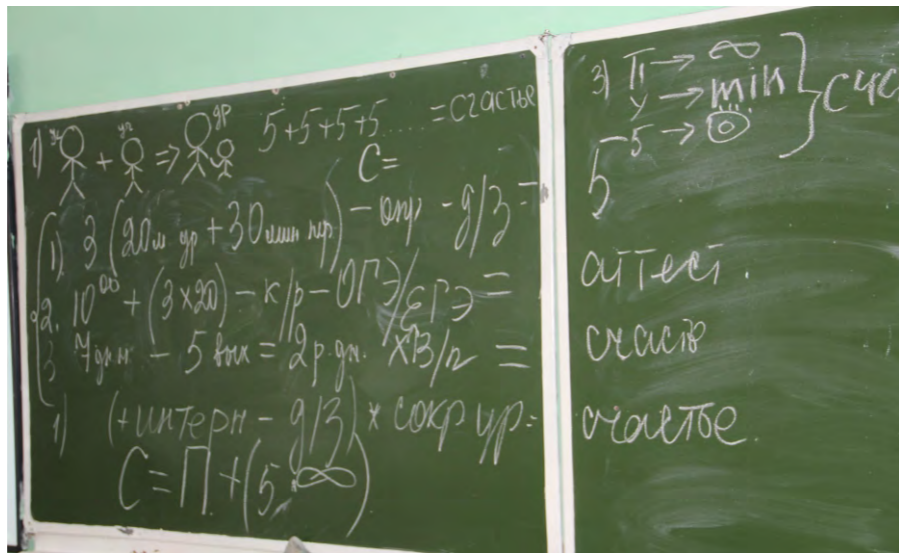 1) + => др 5+5+5+5..... = счастье
С=
1) 3 (20м ур + 30 мин пер) - опр - д/з =
2. 10⁰⁰ + (3 х 20) - к/р - ОГЭ/ЕГЭ =
3 7дн - 5 вых = 2 р.дн. х =
1) (+интерн - д/з) х сокр ур. =
С = П + (5 · ∞)
3) П → ∞
У → min
5 →
} Счас
5
аттест.
счасть
счастье.